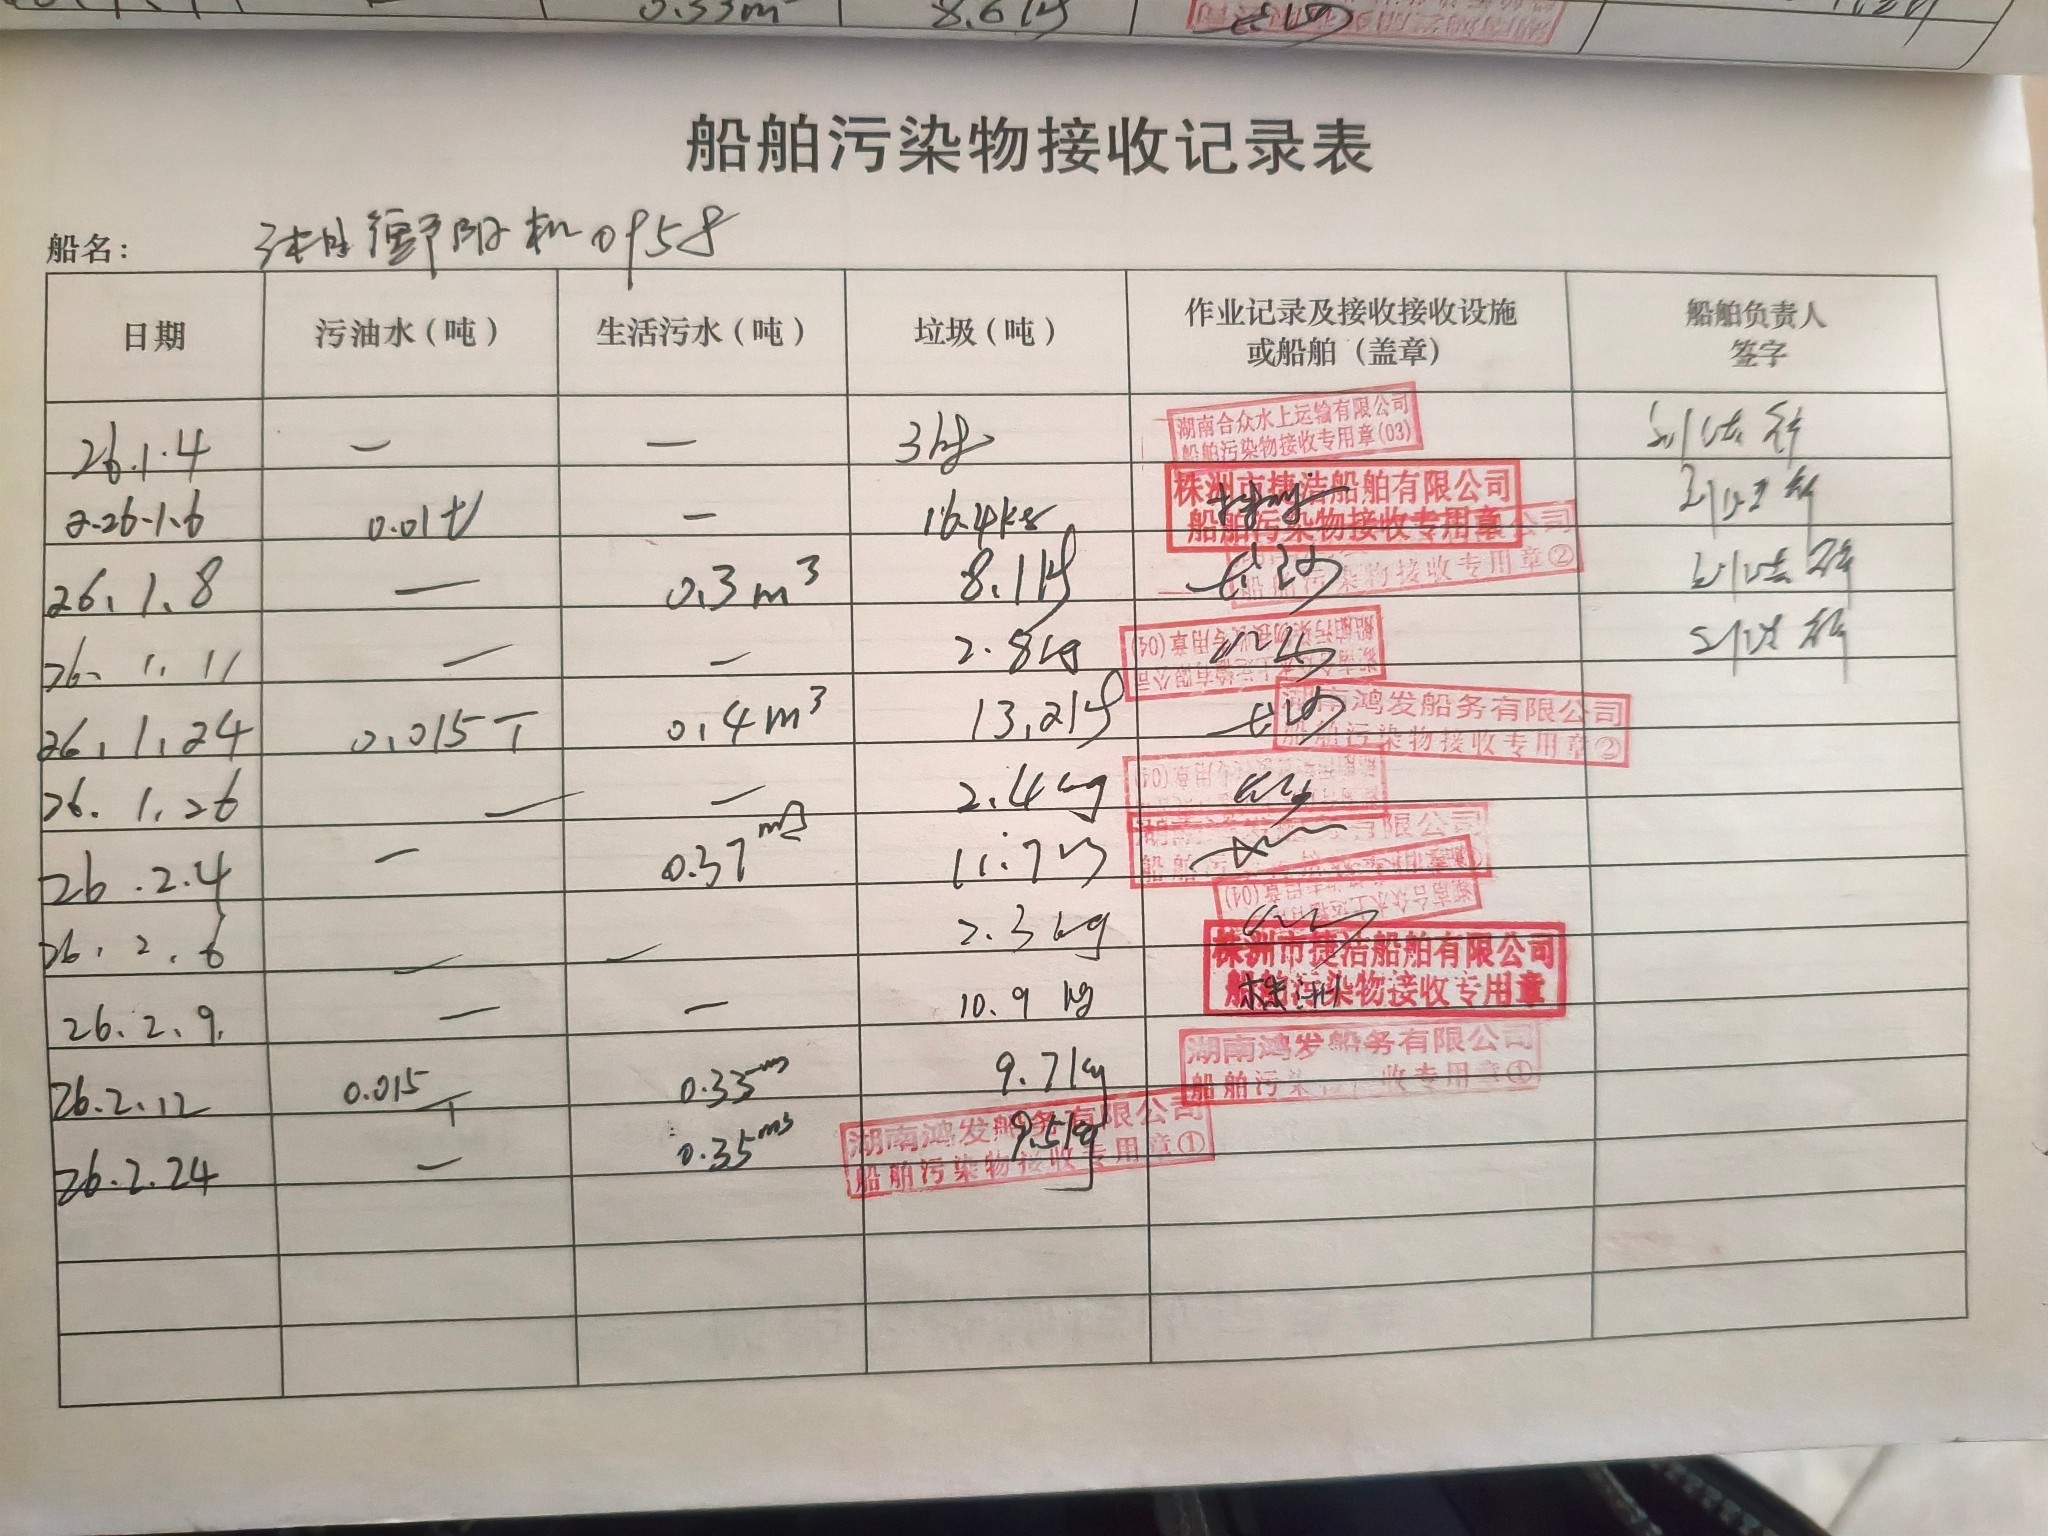 0.33m³ 8.6kg
船舶污染物接收记录表
船名： 湘衡阳机0958
日期 污油水（吨） 生活污水（吨） 垃圾（吨） 作业记录及接收接收设施或船舶（盖章） 船舶负责人签字
26.1.4 — — 3kg 湖南合众水上运输有限公司 船舶污染物接收专用章(03)
2.26.1.6 0.01t — 16.4kg 株洲市捷洁船舶有限公司 船舶污染物接收专用章
26.1.8 — 0.3m³ 8.1kg 公司 船舶污染物接收专用章②
26.1.11 — — 2.8kg 湖南合众水上运输有限公司 船舶污染物接收专用章(04)
26.1.24 0.015T 0.4m³ 13.2kg 湖南鸿发船务有限公司 船舶污染物接收专用章②
26.1.26 — — 2.4kg 专用章(04)
26.2.4 — 0.37m³ 11.7kg 限公司
26.2.6 — — 2.3kg 湖南合众水上运输有限公司
26.2.9. — — 10.9kg 株洲市捷洁船舶有限公司 船舶污染物接收专用章
26.2.12 0.015T 0.33m³ 9.7kg 湖南鸿发船务有限公司 船舶污染 收专用章①
26.2.24 — 0.35m³ 9.5kg 湖南鸿发船务有限公司 船舶污染物接收专用章①